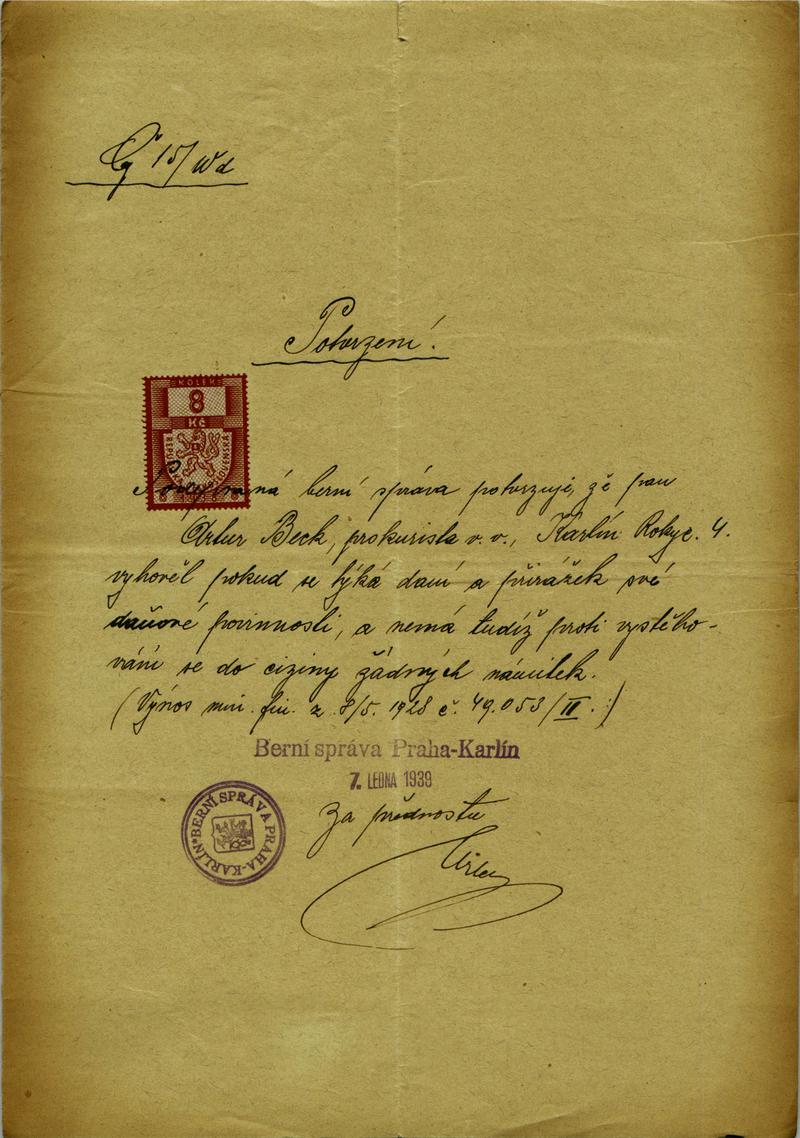 Čj 15/Wd
Potvrzení!
KOLEK
8
Kč
Podepsaná berní správa potvrzuje, že pan
Artur Beck, prokurista v. v., Karlín Rokyc. 4.
vyhověl pokud se týká daní a přirážek své
daňové povinnosti, a nemá tudíž proti vystěho-
vání se do ciziny žádných námitek.
(Výnos min. fin. z 8/5. 1928 č. 49.053/II.:)
Berní správa Praha-Karlín
7. LEDNA 1939
Za přednostu
BERNÍ SPRÁVA PRAHA-KARLÍN